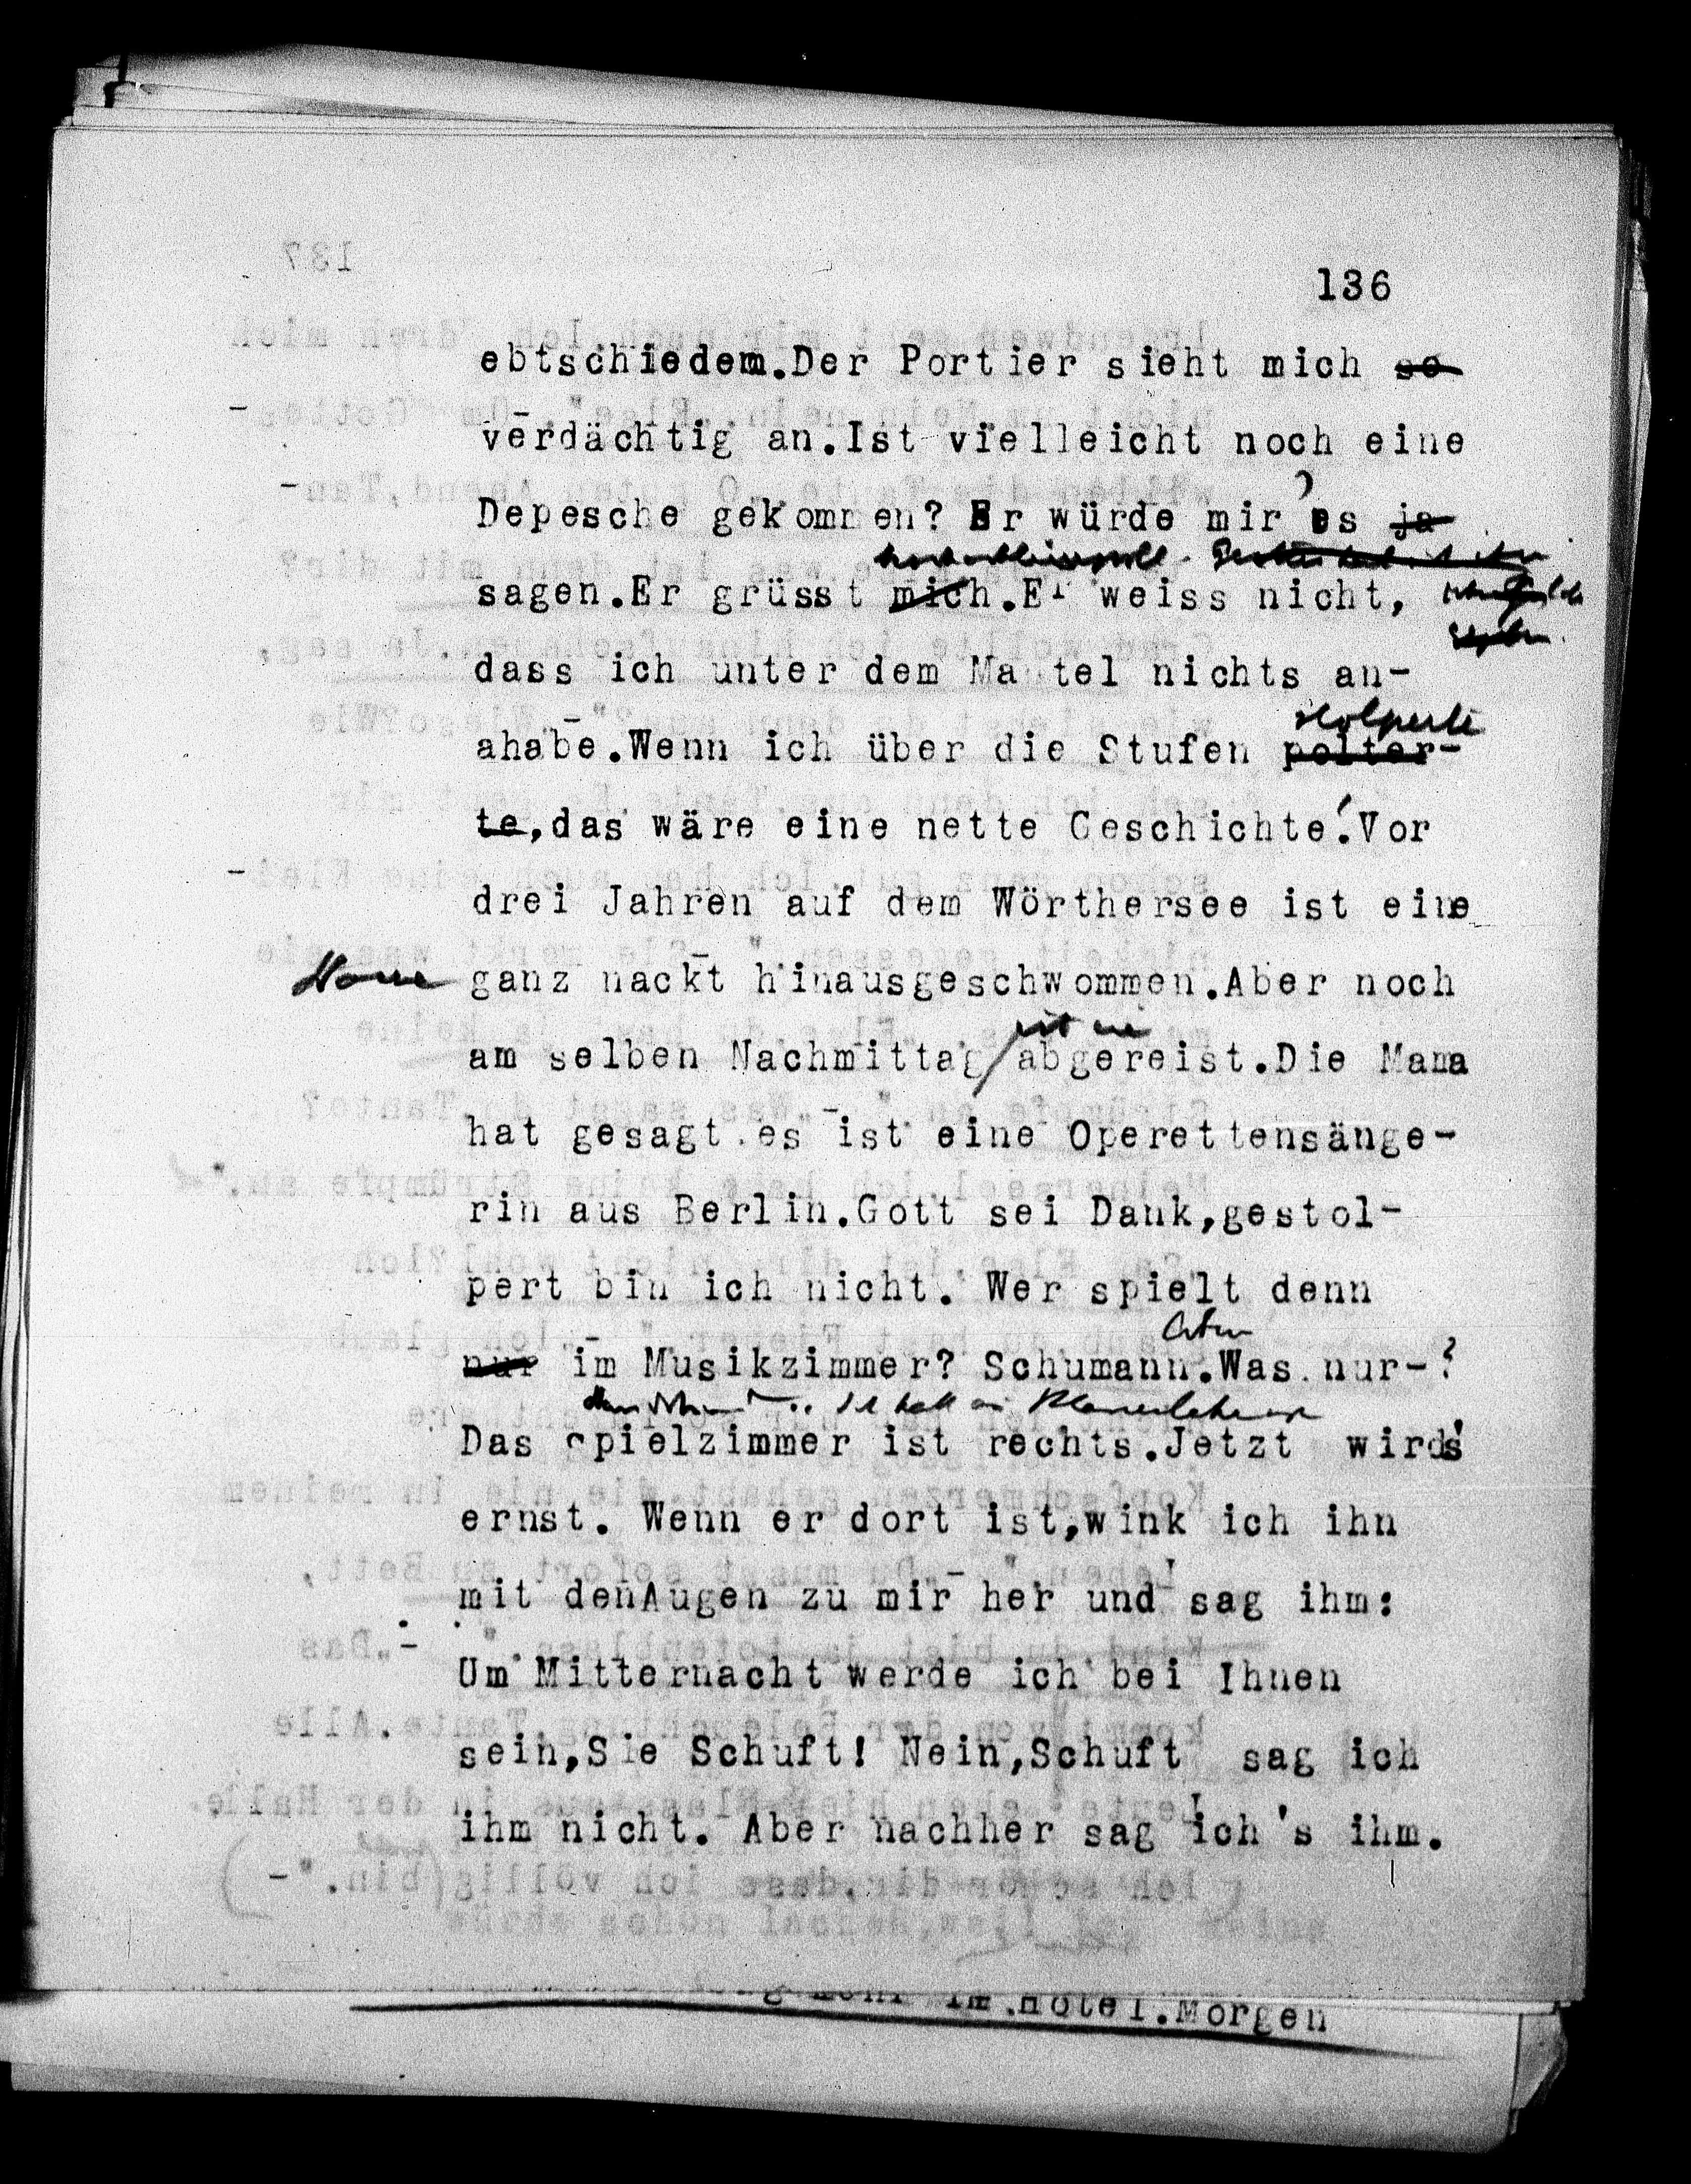 136
ebtschiedem.Der Portier sieht mich so
verdächtig an.Ist vielleicht noch eine
Depesche gekommen? Er würde mir es ja
sagen.Er grüsst mich.Er weiss nicht,
dass ich unter dem Mantel nichts an-
stolperte
ahabe.Wenn ich über die Stufen polter-
te,das wäre eine nette Geschichte!Vor
drei Jahren auf dem Wörthersee ist eine
Dame ganz nackt hinausgeschwommen.Aber noch
ist sie
am selben Nachmittag abgereist.Die Mama
hat gesagt,es ist eine Operettensänge-
rin aus Berlin.Gott sei Dank,gestol-
pert bin ich nicht. Wer spielt denn
nur im Musikzimmer? Schumann.Was nur-?
Das Spielzimmer ist rechts.Jetzt wird's
ernst. Wenn er dort ist,wink ich ihn
mit denAugen zu mir her und sag ihm:
Um Mitternacht werde ich bei Ihnen
sein,Sie Schuft! Nein,Schuft sag ich
ihm nicht. Aber nachher sag ich's ihm.
im Hotel.Morgen